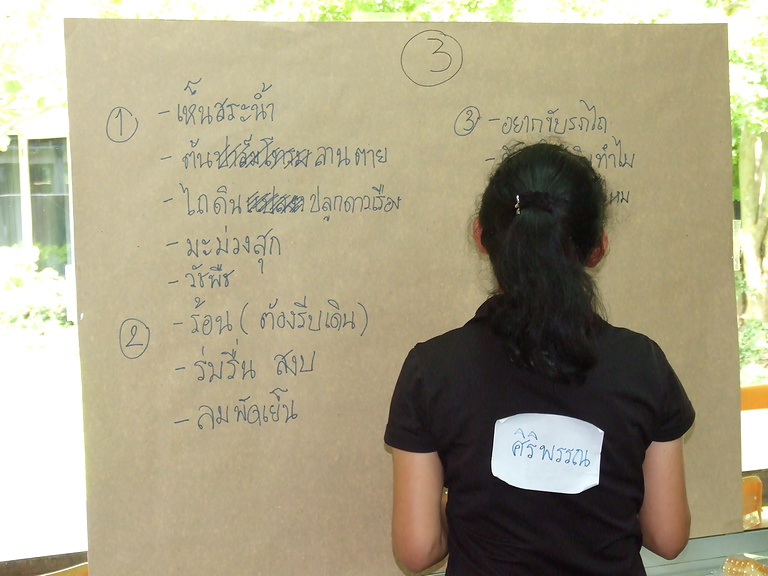 3
① - เห็นสระน้ำ
- ต้น ลานตาย
- ไถดิน ปลูกดาวเรือง
- มะม่วงสุก
- วัชพืช
② - ร้อน ( ต้องรีบเดิน )
- ร่มรื่น สงบ
- ลมพัดเย็น
③ - อยากขับรถไถ
ทำไม
ศิริพรรณ